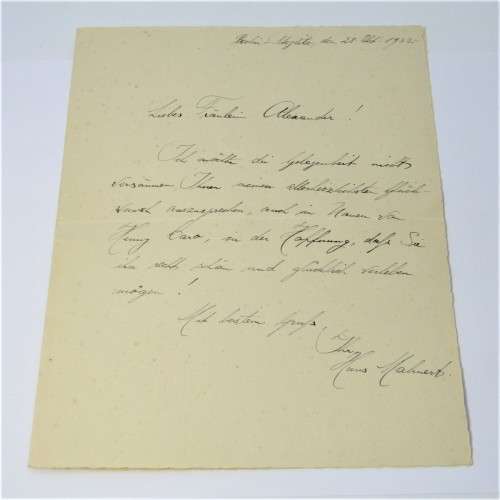 Berlin - Steglitz, den 28. Okt. 1922.
Liebes Fräulein Alexander!
Ich möchte die Gelegenheit nicht
versäumen Ihnen meinen allerherzlichsten Glück-
wunsch auszusprechen, auch im Namen von
Henny Caro, in der Hoffnung, dass Sie
ihn recht schön und glücklich verleben
mögen!
Mit bestem Gruß,
Ihr
Hans Mahnert.